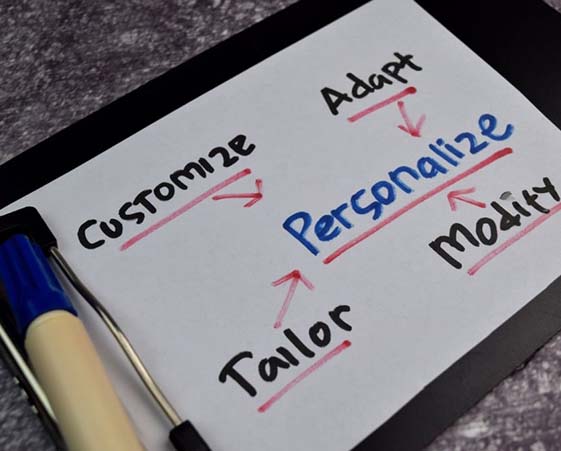 Adapt
Customize
Personalize
Modify
Tailor